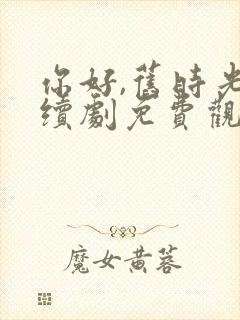 你好,舊時光
續劇免費觀
魔女黄蓉